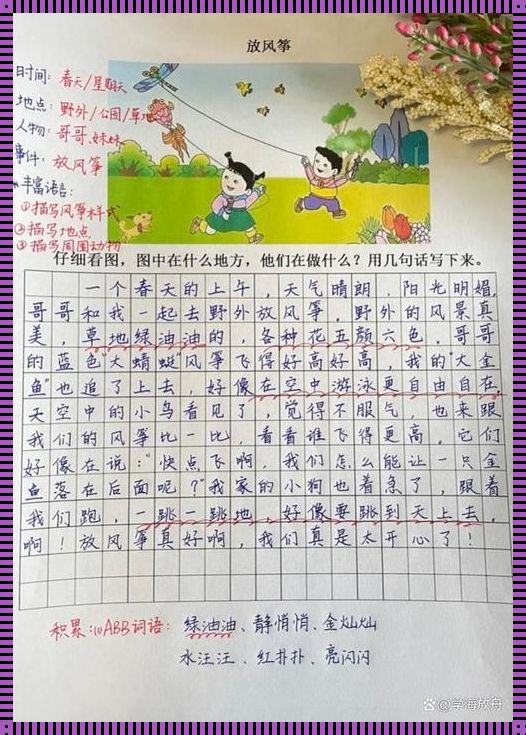 放风筝
时间：春天/星期天
地点：野外/公园/草地
人物：哥哥、妹妹
事件：放风筝
*丰富语言：
①描写风筝样式
②描写地点
③描写周围动物
仔细看图，图中在什么地方，他们在做什么？用几句话写下来。
一个春天的上午，天气晴朗，阳光明媚，
哥哥和我一起去野外放风筝。野外的风景真
美，草地绿油油的，各种花五颜六色。哥哥
的蓝色"大蜻蜓"风筝飞得好高好高，我的"大金
鱼"也追了上去，好像在空中游泳更自由自在，
天空中的小鸟看见了，觉得不服气，也来跟
我们的风筝比一比，看看谁飞得更高。它们
好像在说："快点飞啊，我们怎么能让一只金
鱼落在后面呢？"我家的小狗也着急了，跟着
我们跑，一跳一跳地，好像要跳到天上去，
啊！放风筝真好啊，我们真是太开心了！
积累：(1)ABB词语：绿油油、静悄悄、金灿灿
水汪汪、红扑扑、亮闪闪
@学海放舟